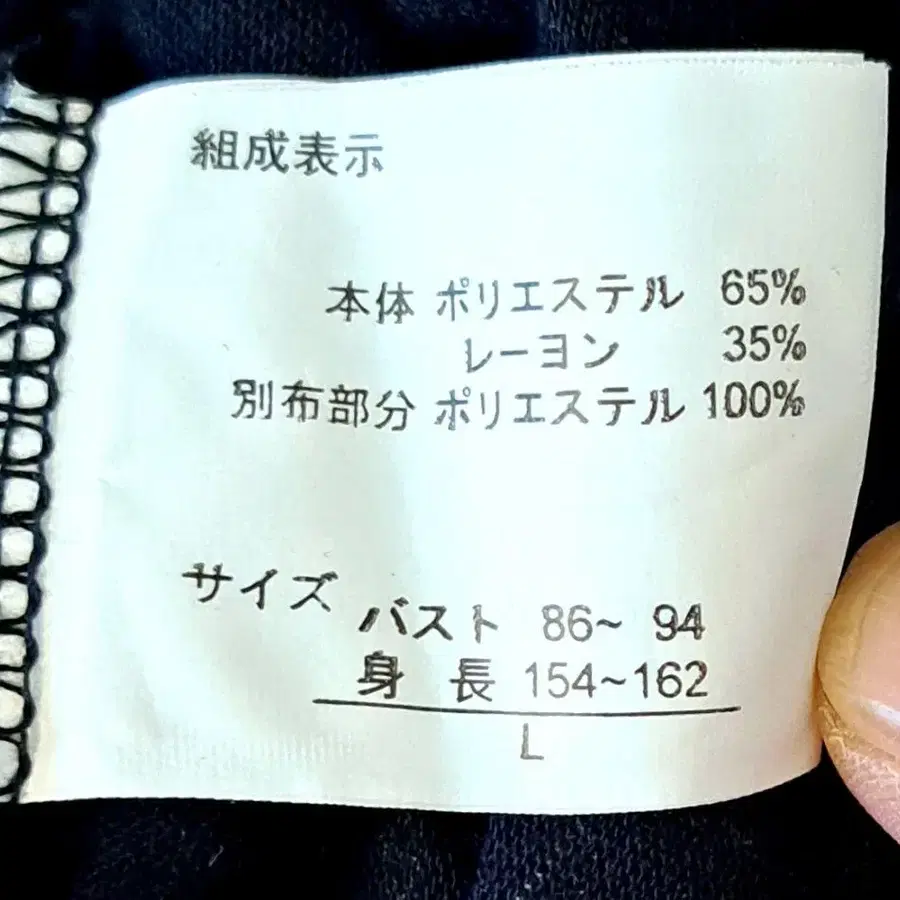 組成表示
本体 ポリエステル 65%
レーヨン 35%
別布部分 ポリエステル 100%
サイズ
バスト 86~ 94
身 長 154~162
L